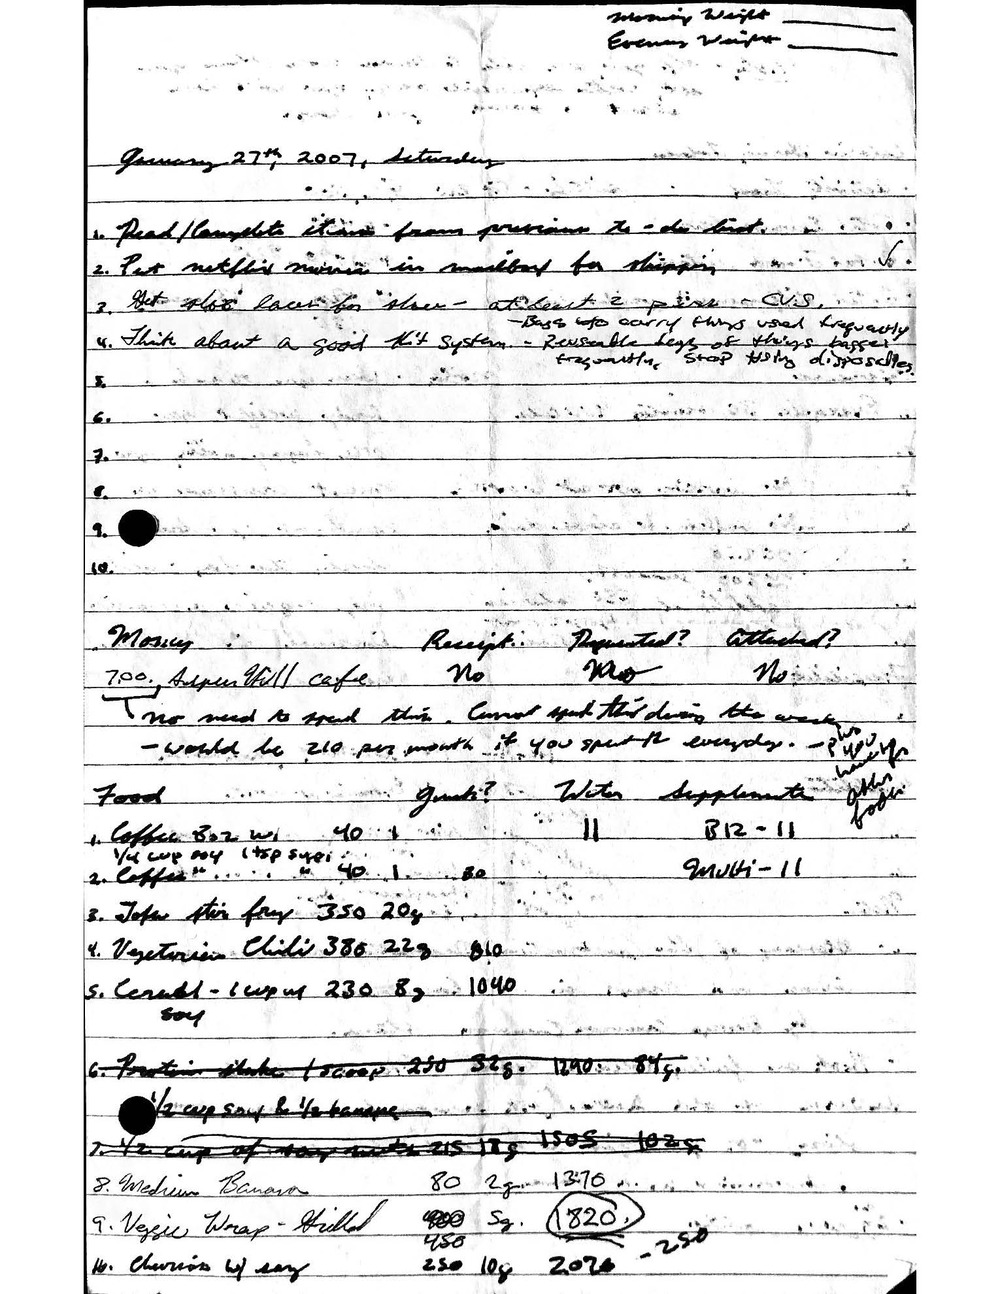 Morning Weight
Evening Weight
January 27th, 2007, Saturday
1. Read/Complete items from previous to-do list.
2. Put netflix movie in mailbox for shipping ✓
3. Get shoe laces for shoes - at least 2 pairs - CVS.
- Bags to carry things used frequently
4. Think about a good system. - Reusable bags of things
frequently, stop using disposables.
5.
6.
7.
8.
9.
10.
Money Receipt. Requested? Attached?
7.00, cafe No No No
no need to spend this. Cannot spend this during the week
- would be 210 per month if you spent it everyday. - plus
you
have
other
food
Food Grams? Water Supplements
1. Coffee 8oz w/ 40 1 11 B12 - 11
1/4 cup soy 1 tsp
2. Coffee " " 40 1 80 Multi - 11
3. Tofu stir fry 350 20g
4. Vegetarian Chili 380 22g 810
5. Cereal - 1 cup w/ 230 8g 1040
soy
6. Protein shake 1 scoop 250 32g. 1290. 84g.
1/2 cup soy & 1/2 banana
7. 1/2 cup of soy nuts 215 18g 1505 102g
8. Medium Banana 80 2g 1370
9. Veggie Wrap - Grilled 5g. 1820.
450 -250
10. Cheerios w/ soy 250 10g 2070